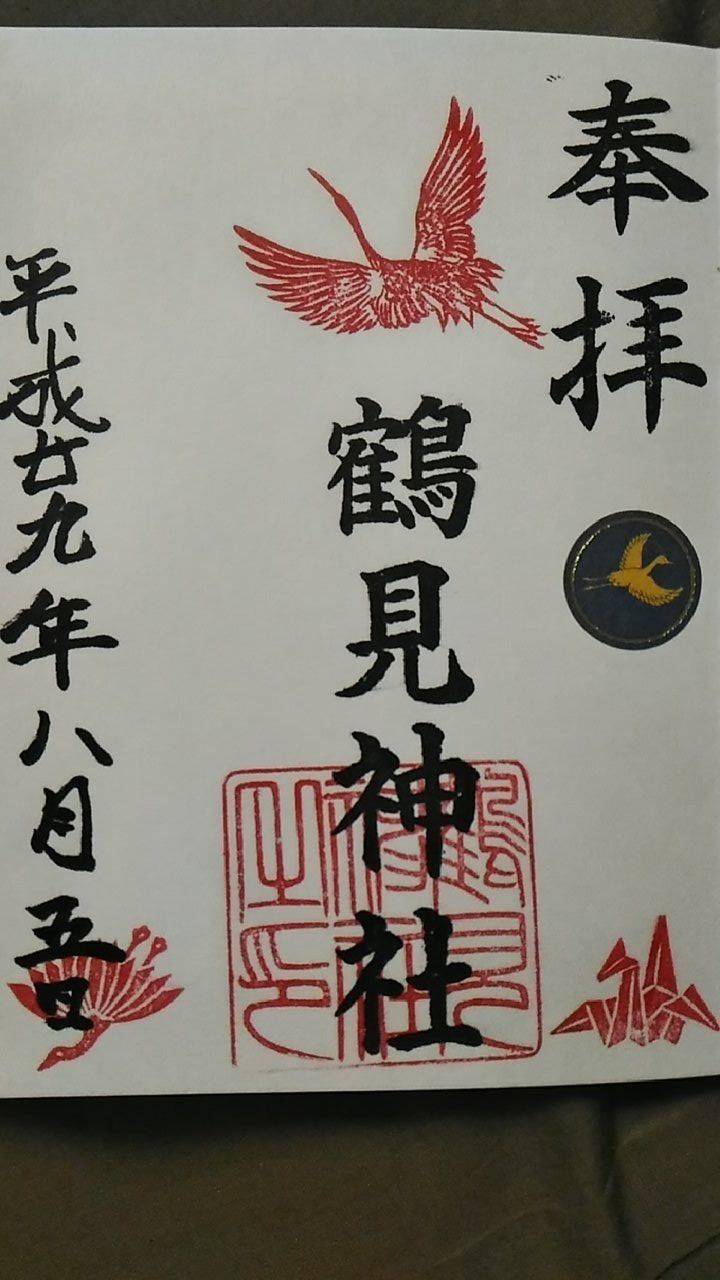 奉拝
鶴見神社
鶴見神社之印
平成廿九年八月五日